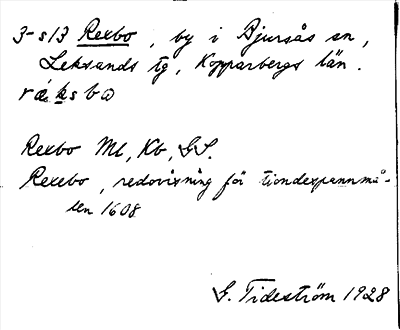 3-s13 Rexbo, by i Bjursås sn,
Leksands tg, Kopparbergs län.
ræksbω
Rexbo Ml, Kb, GS.
Rexebo, redovisning för tiondespannmå-
len 1608
G. Tideström 1928